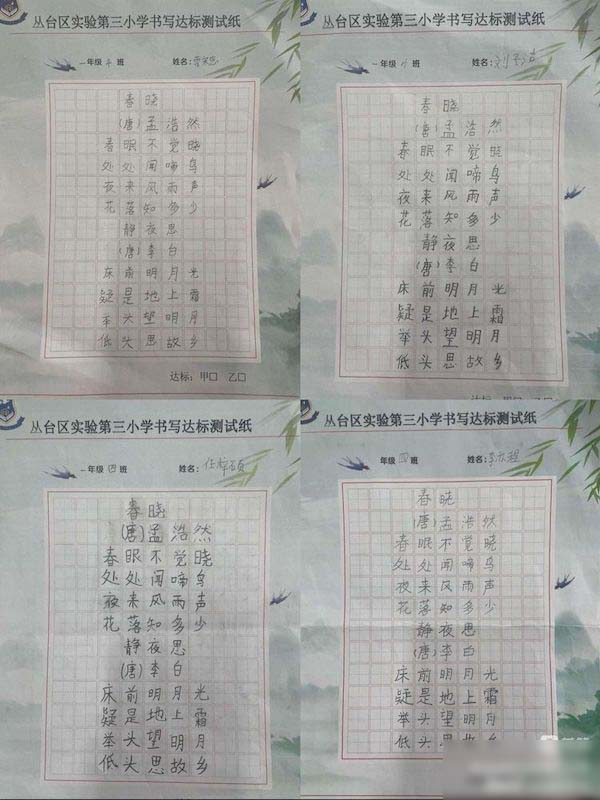 丛台区实验第三小学书写达标测试纸
一年级 班 姓名:
春晓
(唐)孟浩然
春眠不觉晓
处处闻啼鸟
夜来风雨声
花落知多少
静夜思
(唐)李白
床前明月光
疑是地上霜
举头望明月
低头思故乡
达标:甲口 乙口
丛台区实验第三小学书写达标测试纸
一年级 班 姓名:
春晓
(唐)孟浩然
春眠不觉晓
处处闻啼鸟
夜来风雨声
花落知多少
静夜思
(唐)李白
床前明月光
疑是地上霜
举头望明月
低头思故乡
达标:甲口 乙口
丛台区实验第三小学书写达标测试纸
一年级四班 姓名:任梓硕
春晓
(唐)孟浩然
春眠不觉晓
处处闻啼鸟
夜来风雨声
花落知多少
静夜思
(唐)李白
床前明月光
疑是地上霜
举头望明月
低头思故乡
丛台区实验第三小学书写达标测试纸
一年级四班 姓名:李亦程
春晓
(唐)孟浩然
春眠不觉晓
处处闻啼鸟
夜来风雨声
花落知多少
静夜思
(唐)李白
床前明月光
疑是地上霜
举头望明月
低头思故乡